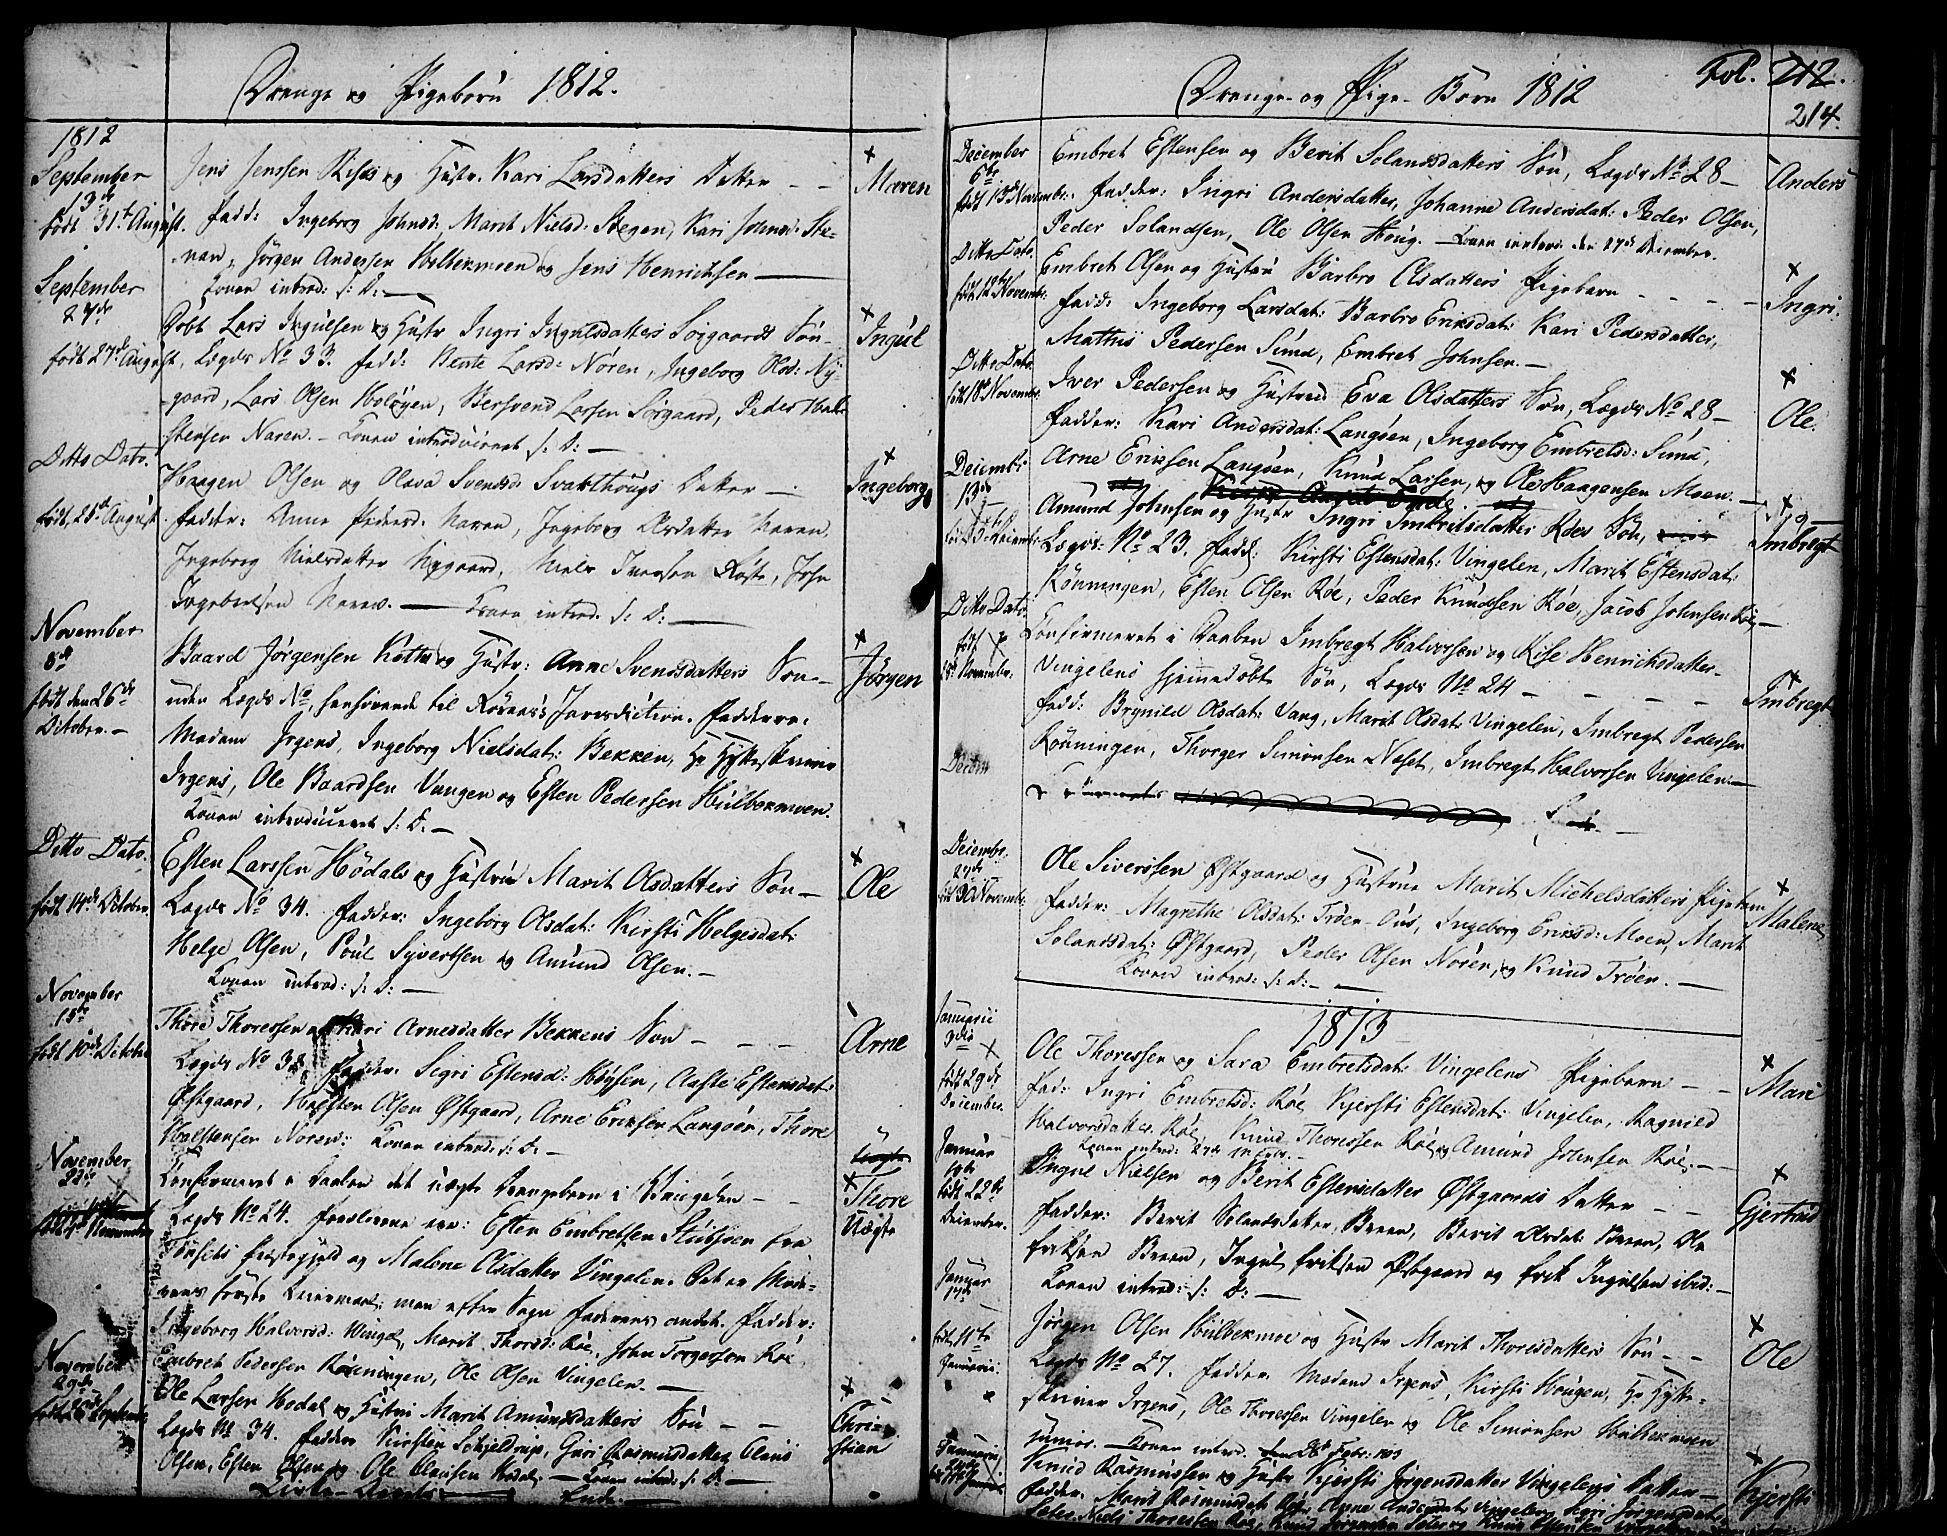 Drenge og Pigebørn 1812.
1812
September
13de
født 31te August.
Jens Jenssen Riises og Hustr. Kari Larsdatters Datter - -
Maren
Fadd: Ingeborg Johnsd: Marit Nielsd: Stegen, Kari Johnsd: Ste-
nen, Jørgen Andersen Hulbekmoen og Jens Henrichsen
Konen introd: s: D:
September
27de
født 27de August,
Døbt Lars Ingulsen og Hustr Ingri Ingulsdatters Sørgaards Søn
Ingul
Lægds No 33. Fadd: Bente Larsd: Noren, Ingeborg Olsd: Ny-
gaard, Lars Olsen Holøyen, Bersvend Larsen Sørgaard, Peder Hal-
stensen Noren. - Konen introduceret s: D:
Ditto Dato.
født, 25de August
Haagen Olsen og Olava Svendsd: Svarthougs Datter
Ingeborg
Fadder: Anne Pedersd: Noren, Ingeborg Olsdatter Noren
Ingeborg Nielsdatter Nygaard, Niels Iversen Røste, John
Ingebertsen Noren. Konen introd. s: D:
November
8de
født den 26de
October.
Baard Jørgensen Kotte og Hustr: Anne Svendsdatters Søn
Jørgen
uden Lægds No, henhørende til Røraas's Jurisdiction. Faddere:
Madam Irgens, Ingeborg Nielsdat: Bekken, Hr Hytteskriver
Irgens, Ole Baardsen Vangen og Esten Pedersen Hulbekmoen.
Konen introduceret s: D:
Ditto Dato.
født 14de October
Esten Larssen Hodals og Hustrue Marit Olsdatters Søn
Ole
Lægds No 34. Fadder: Ingeborg Olsdat: Kirsti Helgesdat:
Helge Olsen, Poul Syvertsen og Amund Olsen.
Konen introd: s: D:
November
15de
født 10de October
Thore Thoressen og Kari Arnesdatter Bekkens Søn - - -
Arne
Lægds No 38 Fadder: Segri Estensd: Høysen, Aaste Estensdat:
Østgaard, Halsten Olsen Østgaard, Arne Eriksen Langøen, Thore
Halstensen Noren: Konen introd: s: D:
November
22de
født 4de November
Confirmeret i Daaben det uægte Drengebarn i Vingelen - -
Thore
Uægte
Lægds No 24. Forældrene ere: Esten Embretsen Stubsøen fra
Tønsets Præstegjeld og Malene Olsdatter Vingelen. Det er Mode-
rens første Leiermaal; men efter Sagn Faderens andet. Fadder:
Ingeborg Halvorsd: Vingel, Marit Thorsd: Røe, John Torgersen Røe
Embret Pedersen Rønningen, Ole Olsen Vingelen.
November
29de
Ole Larsen Hodal og Hustru Marit Amundsdatters Søn - -
Chri-
stian
Lægds No 34. Fadder Kirsten Schjeldrup, Guri Rasmusdatter, Claus
Olsen, Esten Olsen og Ole Clausen Hodal, Konen introd: s: D:
Ende.
Drenge- og Pige- Børn 1812
Fol. 212.
214.
December
6te
født 13de Novembr:
Embret Estensen og Berit Solandsdatters Søn, Lægds No 28
Anders
Fadder: Ingri Andersdatter, Johanne Andersdat: Peder Olsen,
Peder Solandsen, Ole Olsen Houg. Konen introd: den 27de December.
Ditto Dato.
født 12te Novembr:
Embret Olsen og Hustru Barbro Olsdatters Pigebarn - - - -
Ingri.
Fadd: Ingeborg Larsdat: Barbro Eriksdat: Kari Pedersdatter,
Mathis Pedersen Sund, Embret Johnsen.
Ditto Dato.
født 18de November
Iver Pedersen og Hustrue Eva Olsdatters Søn, Lægds No 28
Ole.
Fadder: Kari Andersdat: Langøen, Ingeborg Embretsd: Sund,
Arne Eriksen Langøen, Knud Larsen, og Ole Haagensen Moen.
Decembr:
13de
Amund Johnsen og Hustr Ingri Imbretsdatter Røes Søn,
Imbregt
Lægds No 23. Fadd: Kirsti Estensdat: Vingelen, Marit Estensdat:
Rønningen, Esten Olsen Røe, Peder Knudsen Røe, Jacob Johnsen Røe
Ditto Dato
født
November.
Confirmeret i Daaben Imbregt Halvorsen og Kise Henrichsdatter
Vingelens hjemmedøbt Søn, Lægds No 24 - - - -
Imbregt
Fadd: Brynild Olsdat: Vang, Marit Olsdat: Vingelen, Imbregt Pedersen
Rønningen, Thorger Simonsen Næset, Imbregt Halvorsen Vingelen
Decem
Decembr.
27de
født 30 Novembr:
Ole Siverssen Østgaard og Hustrue Marit Michelsdatters Pigebarn
Malene
Fadder: Magrethe Olsdat: Trøen Ous, Ingeborg Eriksd: Moen, Marit
Solandsdat: Østgaard, Peder Olsen Noren, og Knud Trøen.
Konen introd: s: D:
1813
Januarii
3die
født 29de
December.
Ole Thoressen og Sara Embretsdat: Vingelens Pigebarn - -
Mari
Fad: Ingri Embretsd: Røe, Kjersti Estensdat: Vingelen, Ragnild
Halvorsdatter Røe, Knud Thoressen Røe og Amund Johnsen Røe.
Januar
født 22de
December.
Ingul Nielsen og Berit Estensdatter Østgaards Datter - -
Gjertrud
Fadder: Berit Solandsdatter Breen, Berit Olsdat: Breen, Ole
Eriksen Breen, Ingul Eriksen Østgaard og Erik Ingulsen ibid:
Konen introd: s: D:
Januar
17de
født 11te
Januarii.
Jørgen Olsen Hulbekmoe og Hustr Marit Thoresdatters Søn - -
Ole
Lægds No 27. Fadder. Madam Irgens, Kirsti Hougen, Hr Hytte-
skriver Irgens, Ole Thoressen Vingelen og Ole Simonsen Hulbekmoen
junior. Konen introd. den 28de Febr: 1813
Januarii
Knud Rasmussen og Hustr Kjersti Jørgensdatter Vingelens Datter
Kjersti
Fadder. Marit Rasmusdat: Røe, Anne Andersdat: Vingelen, Kari Jørgensdat: